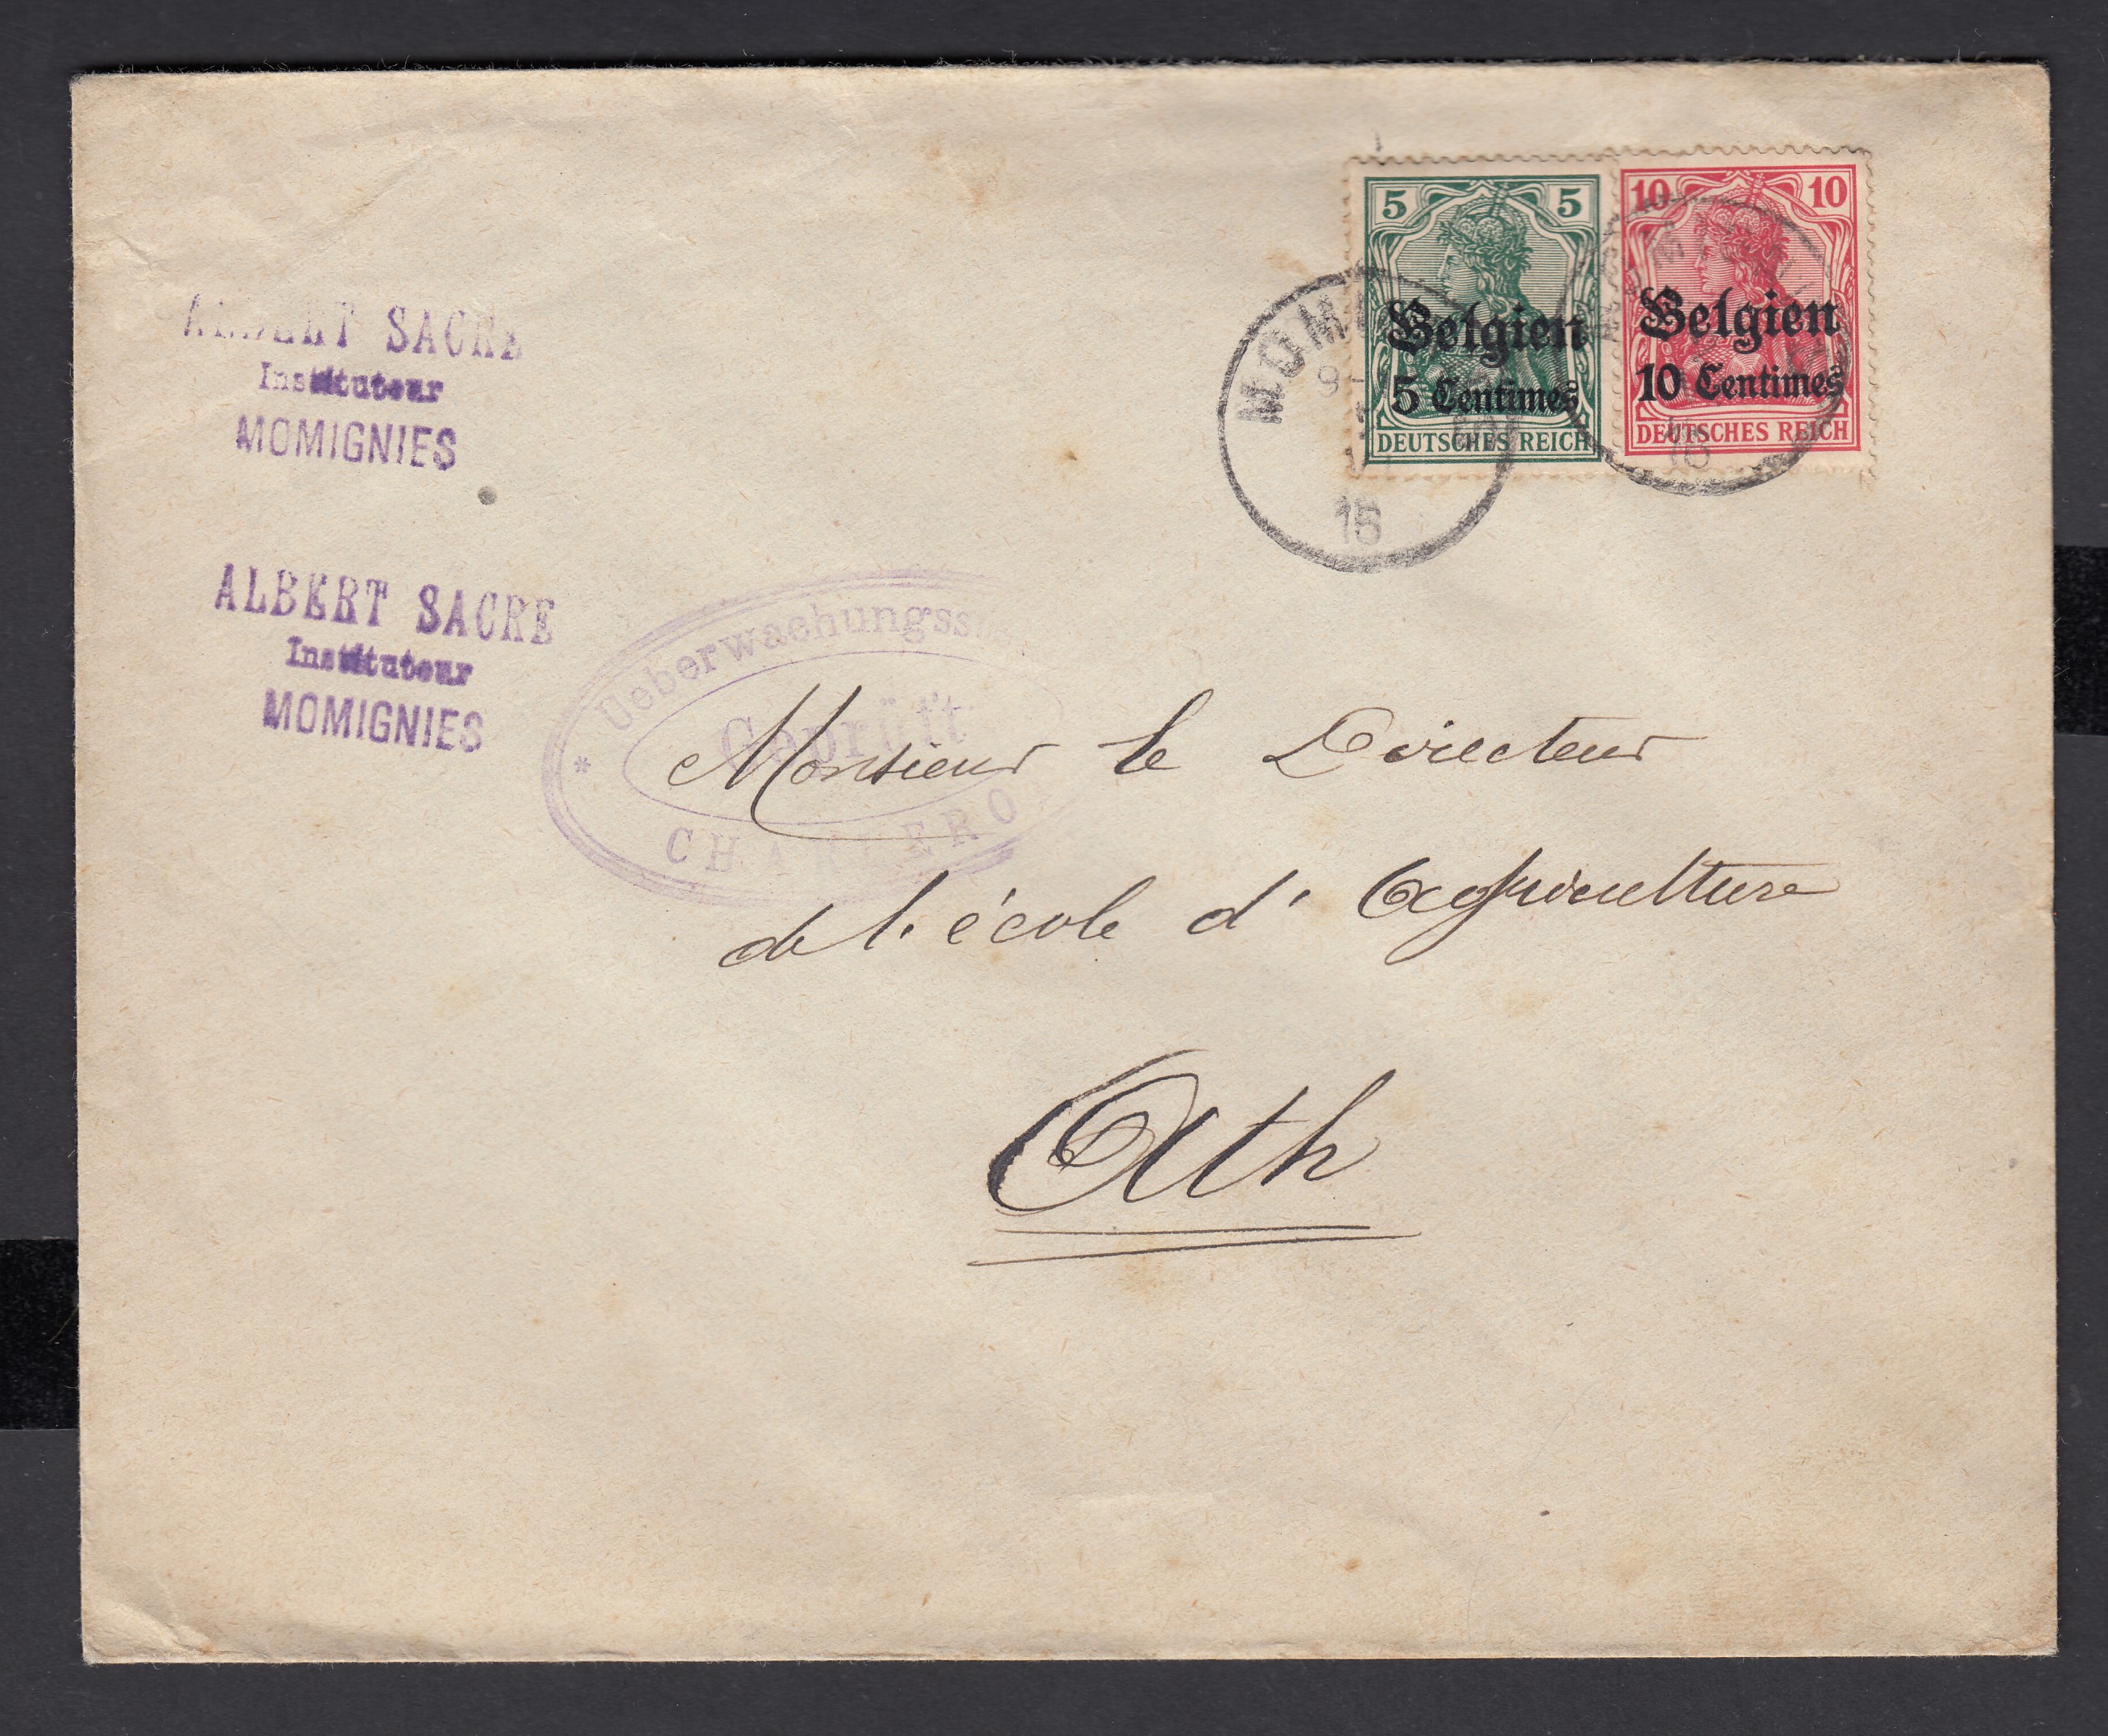 5 5
Belgien
5 Centimes
DEUTSCHES REICH
10 10
Belgien
10 Centimes
DEUTSCHES REICH
15
ALBERT SACRE
Instituteur
MOMIGNIES
ALBERT SACRE
Instituteur
MOMIGNIES
* Ueberwachungsst
Geprüft
CHARLERO
Monsieur le Directeur
de l'école d'Agriculture
Ath